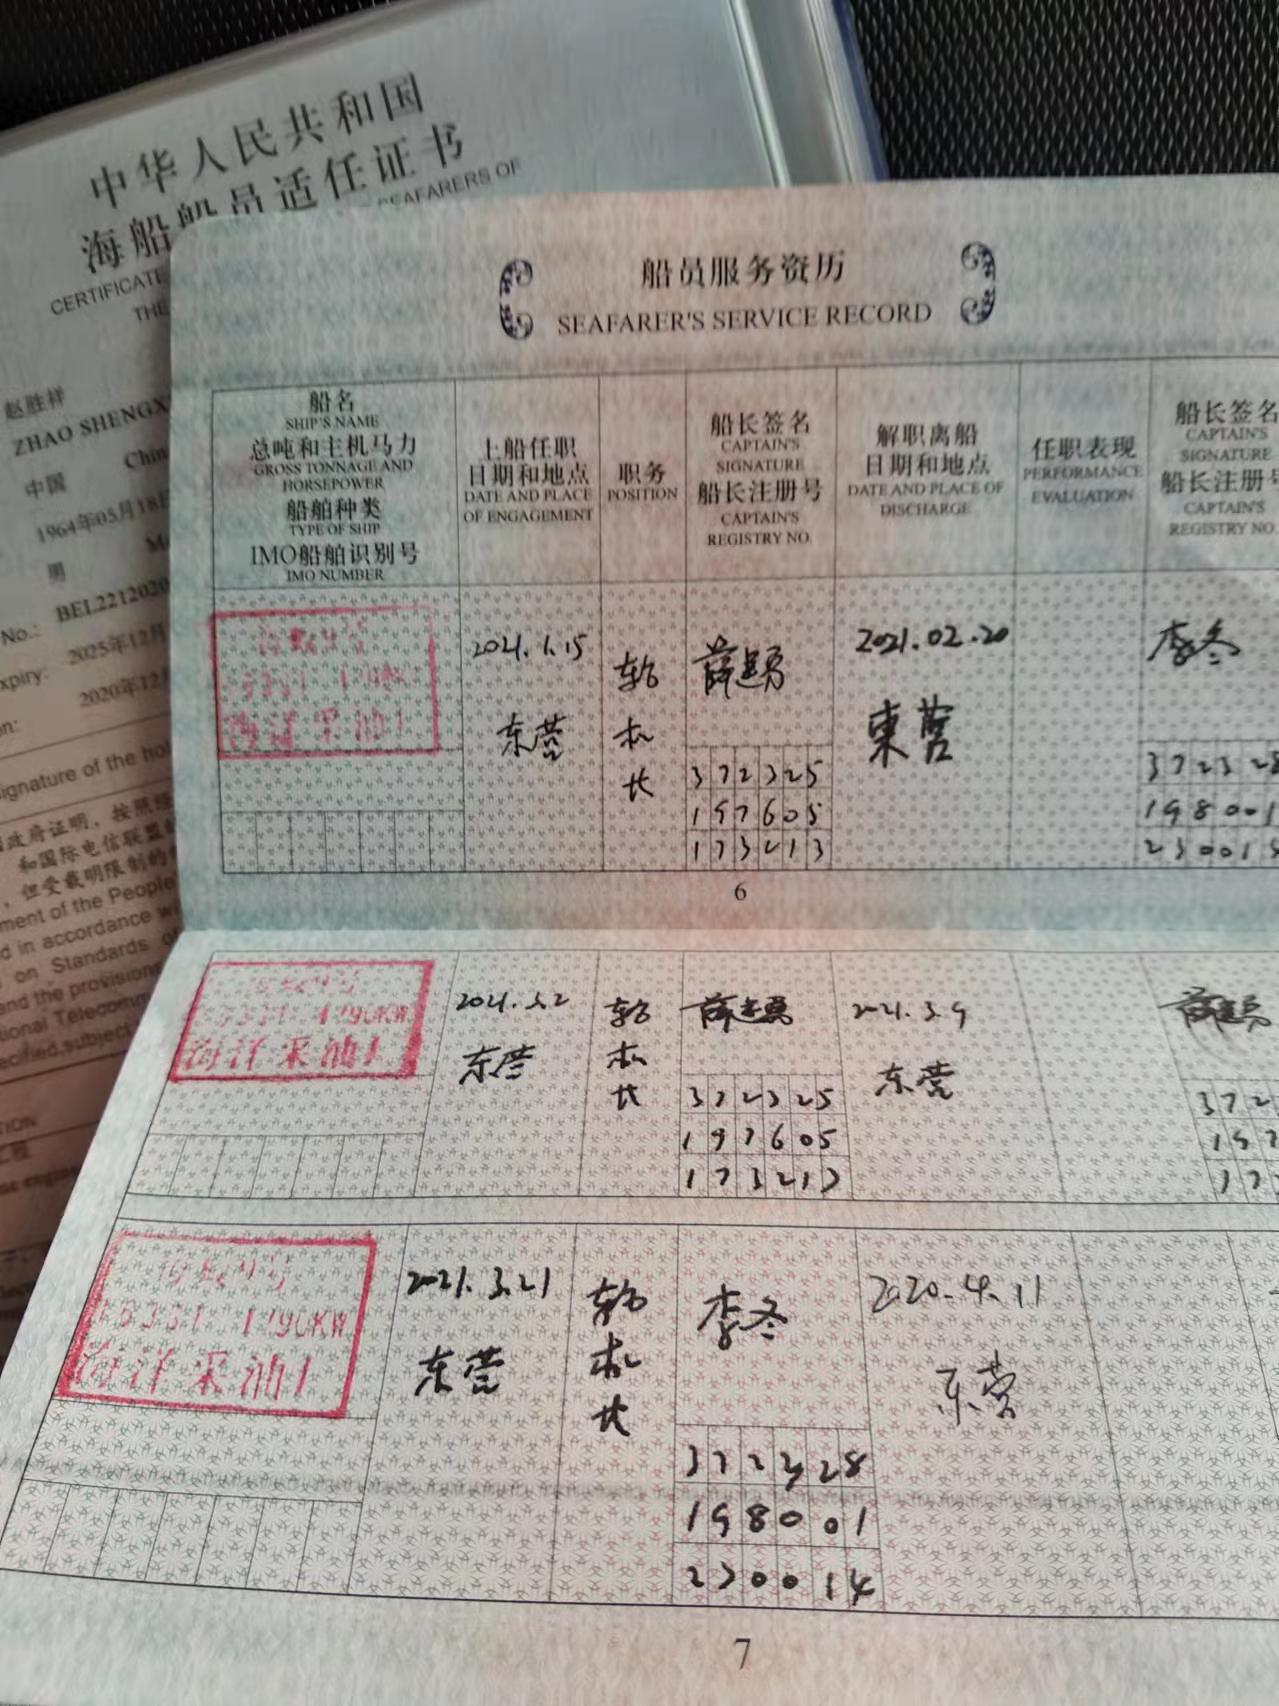 中华人民共和国
海船船员适任证书
SEAFARERS OF
CERTIFICATE
THE
赵胜祥
ZHAO SHENGX
中国
Chin
1964年05月18日
男
M
No.:
BEL2212020
xpiry:
2025年12月
2020年12月
on:
ignature of the hol
政府证明，按照经
和国际电信联盟
，但受载明限制的
ment of the People
d in accordance w
on Standards of
and the provision
tional Telecomm
ecified,subject
TION
工程
ne engin
船员服务资历
SEAFARER'S SERVICE RECORD
船名
SHIP'S NAME
总吨和主机马力
GROSS TONNAGE AND
HORSEPOWER
船舶种类
TYPE OF SHIP
IMO船舶识别号
IMO NUMBER
上船任职
日期和地点
DATE AND PLACE
OF ENGAGEMENT
职务
POSITION
船长签名
CAPTAIN'S
SIGNATURE
船长注册号
CAPTAIN'S
REGISTRY NO.
解职离船
日期和地点
DATE AND PLACE OF
DISCHARGE
任职表现
PERFORMANCE
EVALUATION
船长签名
CAPTAIN'S
SIGNATURE
船长注册号
CAPTAIN'S
REGISTRY NO.
海洋采油1
2021.1.15
东营
轮
机
长
薛建勇
372325
197605
173213
2021.02.20
東营
李冬
372328
198001
23001
6
海洋采油1
2021.3.2
东营
轮
机
长
薛建勇
372325
197605
173213
2021.3.9
东营
薛建勇
372
197
17
1790KW
海洋采油1
2021.3.21
东营
轮
机
长
李冬
372328
198001
230014
2020.4.11
东营
7